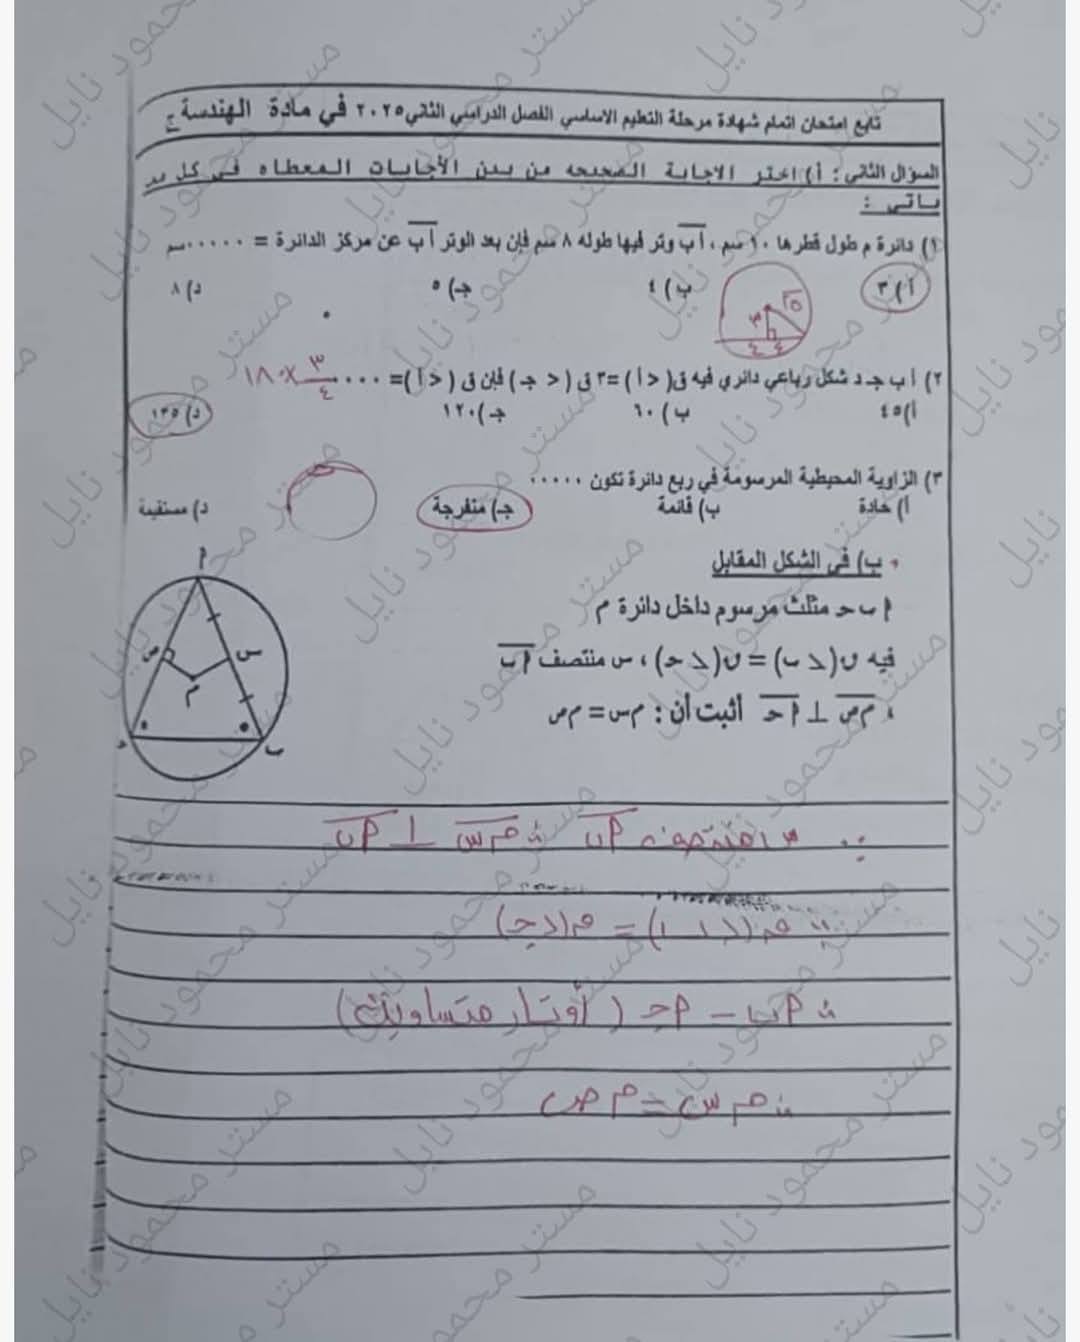 تابع امتحان اتمام شهادة مرحلة التعليم الاساسي الفصل الدراسي الثاني ٢٠٢٥ في مادة الهندسة ج
السؤال الثانى : أ) اختر الاجابة الصحيحه من بين الأجابات المعطاه فى كل
ياتى :
١) دائرة م طول قطرها ١٠ سم ، أب وتر فيها طوله ٨ سم فإن بعد الوتر أب عن مركز الدائرة = ٠٠٠٠٠ سم
أ) ٣ ب) ٤ جـ) ٥ د) ٨
٣ ٥ ٤ ٤
٢) أ ب جـ د شكل رباعي دائري فيه ق(< أ) =٣ ق (< جـ) فإن ق (< أ) = ٠٠٠ ٣/٤ × ١٨٠
أ) ٤٥ ب) ٦٠ جـ) ١٢٠ د) ١٣٥
٣) الزاوية المحيطية المرسومة في ربع دائرة تكون ٠٠٠٠٠
أ) حادة ب) قائمة جـ) منفرجة د) مستقيمة
ب) فى الشكل المقابل
م س ص ب ح
أ ب ح مثلث مرسوم داخل دائرة م
فيه ن(> ب) = ن(> ح) ، س منتصف أب
، م ص ⊥ أ ح أثبت أن : م س = م ص
∵ س منتصف أب ∴ م س ⊥ أب
∴ أب = أج (أوتار متساوية)
∴ م س = م ص
مستر محمود نايل